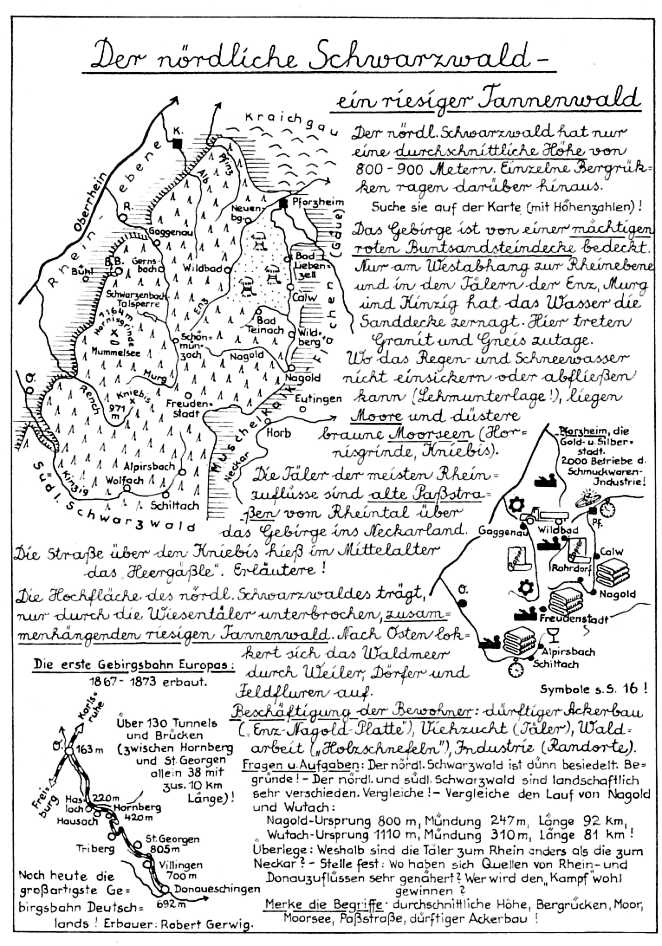 Der nördliche Schwarzwald –
ein riesiger Tannenwald
Der nördl. Schwarzwald hat nur
eine durchschnittliche Höhe von
800 - 900 Metern. Einzelne Bergrük=
ken ragen darüber hinaus.
Suche sie auf der Karte (mit Höhenzahlen) !
Das Gebirge ist von einer mächtigen
roten Buntsandsteindecke bedeckt.
Nur am Westabhang zur Rheinebene
und in den Tälern der Enz, Murg
und Kinzig hat das Wasser die
Sanddecke zernagt. Hier treten
Granit und Gneis zutage.
Wo das Regen- und Schneewasser
nicht einsickern oder abfließen
kann (Lehmunterlage!), liegen
Moore und düstere
braune Moorseen (Hor=
nisgrinde, Kniebis).
Die Täler der meisten Rhein=
zuflüsse sind alte Paßstra=
ßen vom Rheintal über
das Gebirge ins Neckarland.
Die Straße über den Kniebis hieß im Mittelalter
das „Heergäßle". Erläutere !
Die Hochfläche des nördl. Schwarzwaldes trägt,
nur durch die Wiesentäler unterbrochen, zusam=
menhängenden riesigen Tannenwald. Nach Osten lok=
kert sich das Waldmeer
durch Weiler, Dörfer und
Feldfluren auf.
Beschäftigung der Bewohner: dürftiger Ackerbau
(„Enz-Nagold-Platte"), Viehzucht (Täler), Wald=
arbeit („Holzschnefeln"), Industrie (Randorte).
Fragen u. Aufgaben: Der nördl. Schwarzwald ist dünn besiedelt. Be=
gründe! - Der nördl. und südl. Schwarzwald sind landschaftlich
sehr verschieden. Vergleiche! - Vergleiche den Lauf von Nagold
und Wutach:
Nagold-Ursprung 800 m, Mündung 247 m, Länge 92 km,
Wutach-Ursprung 1110 m, Mündung 310 m, Länge 81 km !
Überlege: Weshalb sind die Täler zum Rhein anders als die zum
Neckar? - Stelle fest: Wo haben sich Quellen von Rhein- und
Donauzuflüssen sehr genähert? Wer wird den „Kampf" wohl
gewinnen ?
Merke die Begriffe: durchschnittliche Höhe, Bergrücken, Moor,
Moorsee, Paßstraße, dürftiger Ackerbau !
Kraichgau
K.
Oberrhein
Rheinebene
Alb
Pfinz
Pforzheim
Neuen-
bg.
R.
Gaggenau
B.B.
Gerns
bach
Bühl
Wildbad
Bad
Lieben-
zell
(Gäue)
Schwarzenbach
Talsperre
Enz
Calw
1164m
Hornisgrinde
Bad
Teinach
Mummelsee
Schön-
mün-
zach
Wild-
berg
Nagold
Murg
Nagold
O.
Rench
Kniebis
971 m
Freuden-
stadt
Eutingen
Muschelkalkflächen
Horb
Neckar
Alpirsbach
Kinzig
Wolfach
Schiltach
Südl. Schwarzwald
Pforzheim, die
Gold- u. Silber-
stadt.
2000 Betriebe d.
Schmuckwaren-
Industrie!
Gaggenau
Wildbad
Pf.
Calw
Rohrdorf
Nagold
O.
Freudenstadt
Alpirsbach
Schiltach
Symbole s.S. 16 !
Die erste Gebirgsbahn Europas:
1867 - 1873 erbaut.
Karls-
ruhe
O.
163 m
Frei-
burg
Über 130 Tunnels
und Brücken
(zwischen Hornberg
und St. Georgen
allein 38 mit
zus. 10 km
Länge) !
Has
lach
220m
Hausach
Hornberg
420m
Triberg
St. Georgen
805m
Villingen
700 m
Donaueschingen
692 m
Noch heute die
großartigste Ge-
birgsbahn Deutsch-
lands ! Erbauer: Robert Gerwig.